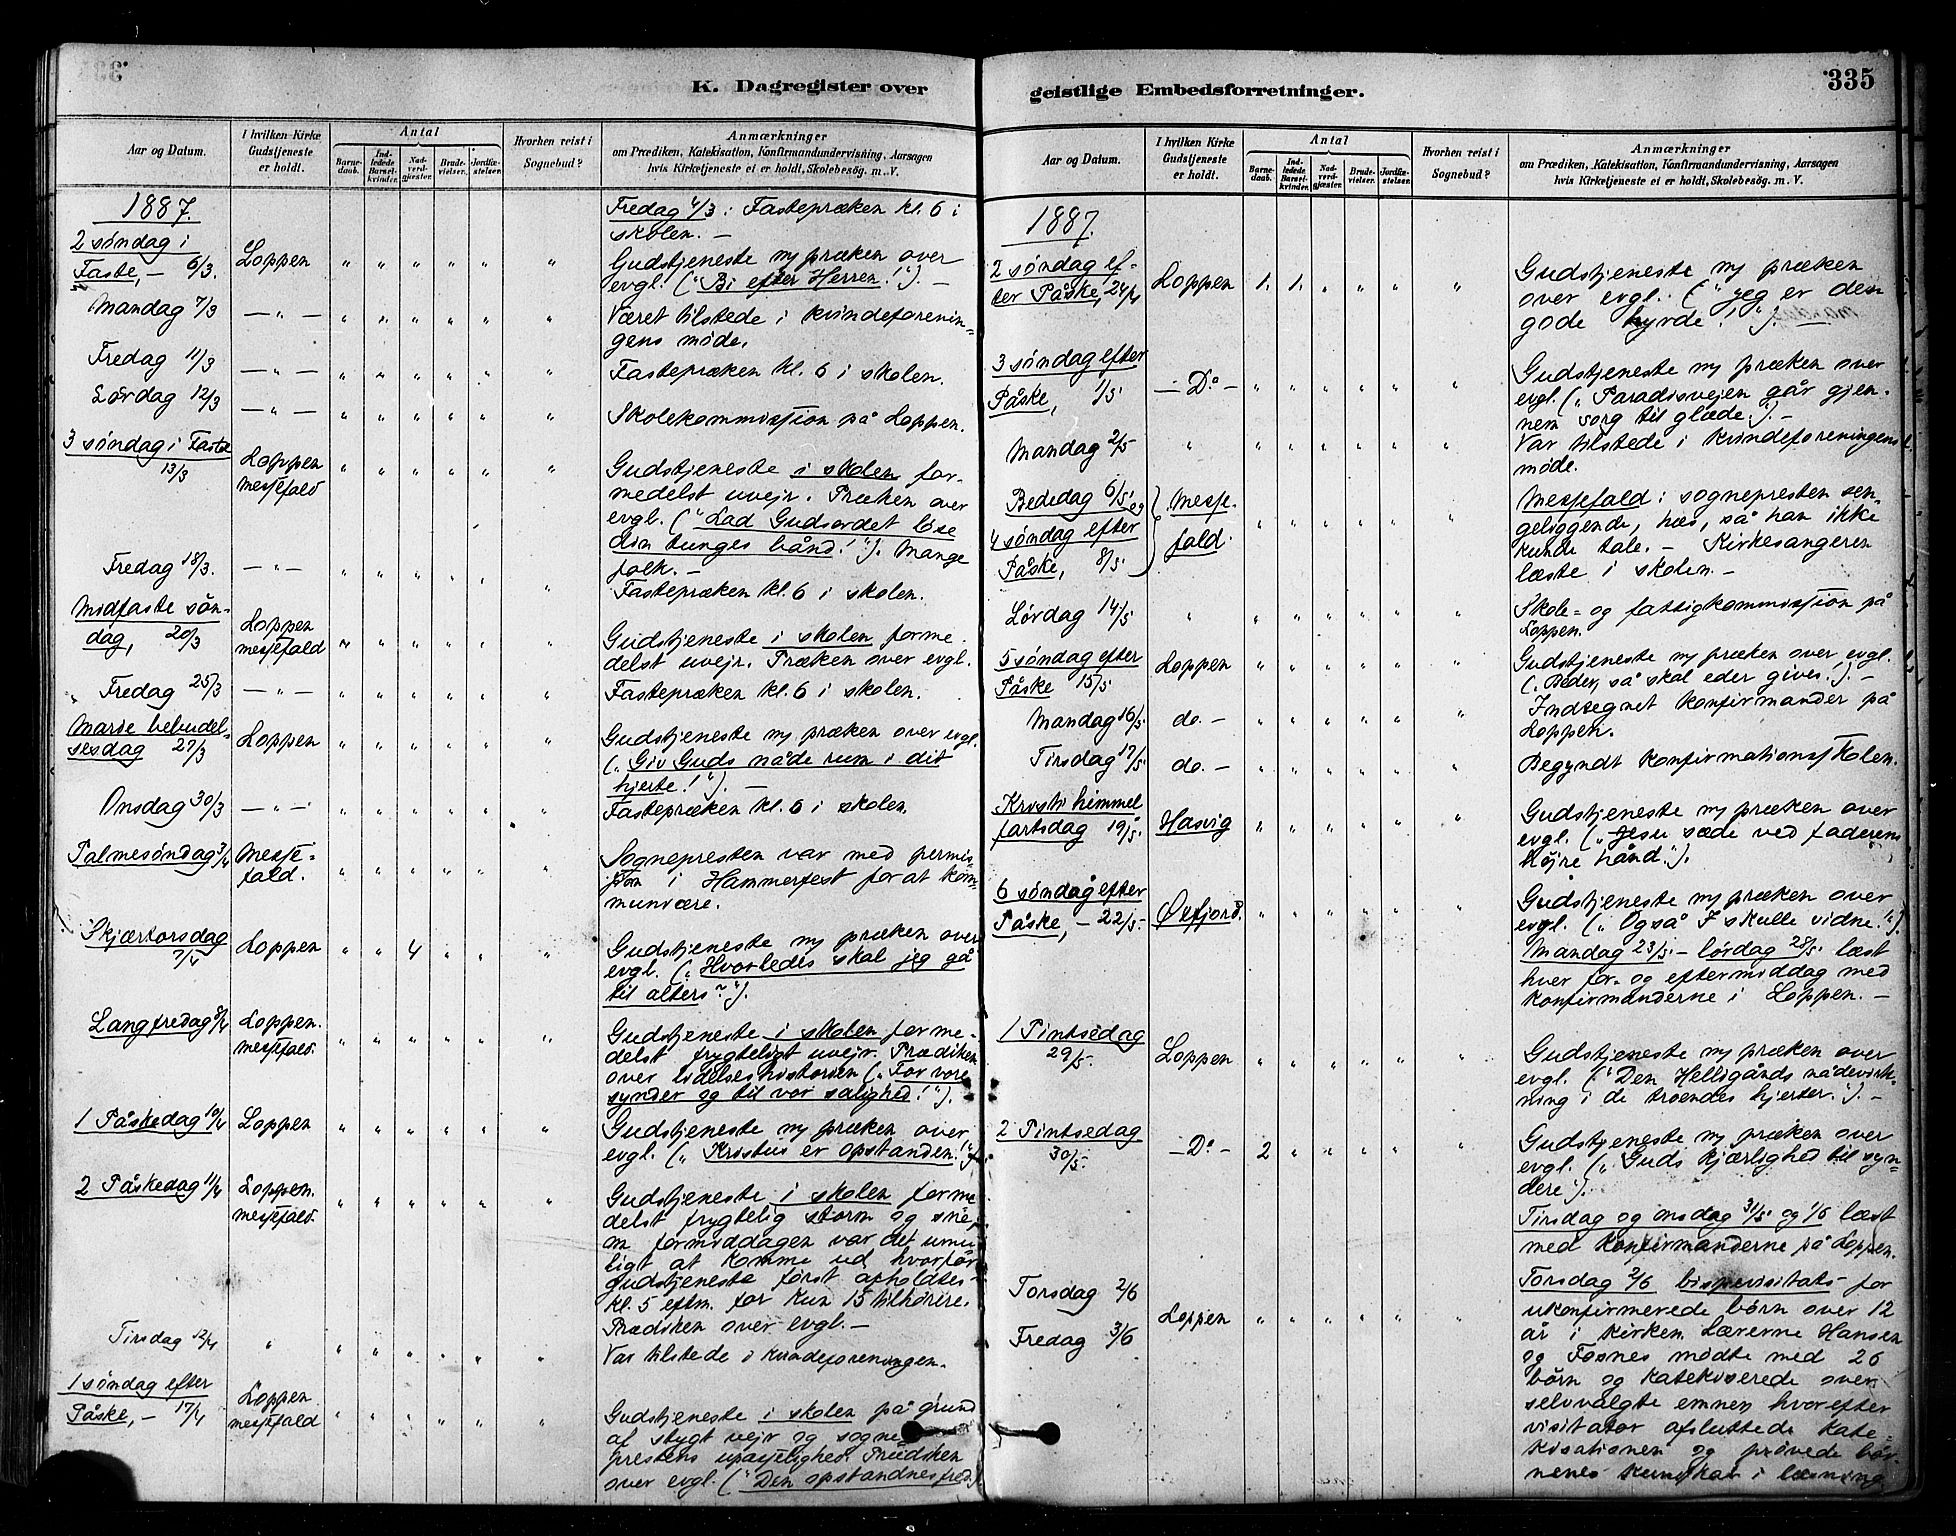 K. Dagregister over
Aar og Datum.
I hvilken Kirke
Gudstjeneste
er holdt.
Antal
Barne-
daab.
Ind-
ledede
Barsel-
kvinder.
Nad-
verd-
gjester.
Brude-
vielser.
Jordfæ-
stelser.
Hvorhen reist i
Sognebud?
Anmærkninger
om Prædiken, Katekisation, Konfirmandundervisning, Aarsagen
hvis Kirketjeneste ei er holdt, Skolebesøg. m. V.
1887.
Fredag 4/3: Fastepræken kl. 6 i
skolen. —
2 søndag i
Faste, — 6/3.
Loppen
" " " " " "
Gudstjeneste m/ præken over
evgl. ("Bi efter Herren!"). —
Mandag 7/3
— " —
" " " " " "
Været tilstede i kvindeforenin-
gens møde.
Fredag 11/3
— " —
" " " " " "
Fastepræken kl. 6 i skolen.
Lørdag 12/3
— " —
" " " " " "
Skolekommission på Loppen.
3 søndag i Faste
13/3
Loppen
messefald
" " " " " "
Gudstjeneste i skolen for-
medelst uvejr. Præken over
evgl. ("Lad Gudsordet løse
din tunges bånd!"). Mange
folk. —
Fredag 18/3.
— " —
" " " " " "
Fastepræken kl. 6 i skolen.
Midfaste søn-
dag, 20/3
Loppen
messefald
" " " " " "
Gudstjeneste i skolen forme-
delst uvejr. Præken over evgl.
Fredag 25/3
— " —
" " " " " "
Fastepræken kl. 6 i skolen.
Mariæ bebudel-
sesdag 27/3
Loppen
" " " " " "
Gudstjeneste m/ præken over evgl.
("Giv Guds nåde rum i dit
hjerte!"). —
Onsdag 30/3
— " —
" " " " " "
Fastepræken kl. 6 i skolen.
Palmesøndag 3/4
Messe-
fald.
" " " " " "
Sognepresten var med permis-
sion i Hammerfest for at kom-
munvære.
Skjærtorsdag
7/4
Loppen
" " 4 " " "
Gudstjeneste m/ præken over
evgl. ("Hvorledes skal jeg gå
til alters?").
Langfredag 8/4
Loppen.
messefald.
" " " " " "
Gudstjeneste i skolen forme-
delst frygteligt uvejr. Prædiken
over lidelseshistorien ("For vore
synder og til vor salighed!").
1 Påskedag 10/4
Loppen
" " " " " "
Gudstjeneste m/ præken over
evgl. ("Kristus er opstanden!")
2 Påskedag 11/4
Loppen.
messefald.
" " " " " "
Gudstjeneste i skolen forme
delst frygtelig storm og sne,
om formiddagen var det umu-
ligt at komme ud hvorfor
gudstjeneste først afholdtes
kl. 5 eftm. for kun 15 tilhørere.
Prædiken over evgl. —
Tirsdag 12/4
"
" " " " " "
Var tilstede i kvindeforeningen.
1 søndag efter
Påske, — 17/4
Loppen
messefald
" " " " " "
Gudstjeneste i skolen på grund
af stygt vejr og sogne
prestens upasselighed. Prædiken
over evgl. ("Den opstandnes fred.)
geistlige Embedsforretninger.
335
Aar og Datum.
I hvilken Kirke
Gudstjeneste
er holdt.
Antal
Barne-
daab.
Ind-
ledede
Barsel-
kvinder.
Nad-
verd-
gjester.
Brude-
vielser.
Jordfæ-
stelser.
Hvorhen reist i
Sognebud?
Anmærkninger
om Prædiken, Katekisation, Konfirmandundervisning, Aarsagen
hvis Kirketjeneste ei er holdt, Skolebesøg. m. V.
1887.
2 søndag ef-
ter Påske, 24/4
Loppen
1. 1. " " " "
Gudstjeneste m/ præken
over evgl. ("Jeg er den
gode hyrde!").
3 søndag efter
Påske, 1/5
— Do —
" " " " " "
Gudstjeneste m/ præken over
evgl. ("Paradisvejen går gjen-
nem sorg til glæde."). —
Mandag 2/5
"
" " " " " "
Var tilstede i kvindeforeningens
møde.
Bededag 6/5 og
4 søndag efter
Påske, 8/5
Messe-
fald.
" " " " " "
Messefald: sognepresten sen-
geliggende, hæs, så han ikke
kunde tale. — Kirkesangeren
læste i skolen. —
Lørdag 14/5
"
" " " " " "
Skole- og fattigkommission på
Loppen.
5 søndag efter
Påske 15/5
Loppen
" " " " " "
Gudstjeneste m/ præken over evgl.
("Beder, så skal eder gives!"). —
Mandag 16/5
do. —
" " " " " "
Indtegnet konfirmander på
Loppen.
Tirsdag 17/5
do. —
" " " " " "
Begyndt konfirmationsskolen.
Kristi himmel
fartsdag 19/5.
Hasvig
" " " " " "
Gudstjeneste m/ præken over
evgl. ("Jesu sæde ved faderens
højre hånd.").
6 søndag efter
Påske, — 22/5 —
Øxfjord.
" " " " " "
Gudstjeneste m/ præken over
evgl. ("Også I skulle vidne.").
Mandag 23/5 — lørdag 28/5 læst
hver for- og eftermiddag med
konfirmanderne i Loppen. —
1 Pintsedag
29/5.
Loppen
" " " " " "
Gudstjeneste m/ præken over
evgl. ("Den Helligånds nådevirk-
ning i de troendes hjerter."). —
2 Pintsedag
30/5.
— Do —
2 " " " " "
Gudstjeneste m/ præken over
evgl. ("Guds kjærlighed til syn-
dere").
Tirsdag og onsdag 31/5 og 1/6 læst
med konfirmanderne på Loppen.
Torsdag 2/6
Fredag 3/6
Loppen
" " " " " "
Torsdag 2/6 bispevisitats for
ukonfirmerede børn over 12
år i kirken. Lærerne Hansen
og Fosnes mødte med 26
børn og katekiserede over
selvvalgte emner hvorefter
visitator afsluttede kate-
kisationen og prøvede bør-
nenes kunskab i læsning